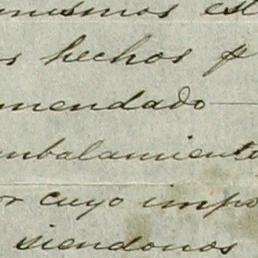 mismos est
s hechos p
mendado
mbalamiento
or cuyo impo
siendonos